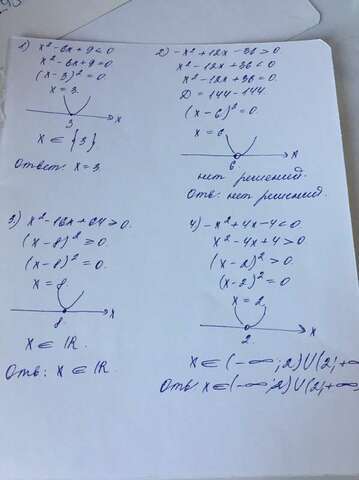 1) x² - 6x + 9 < 0
x² - 6x + 9 = 0
(x - 3)² = 0
x = 3.
3 x
x ∈ {3}
Ответ: x = 3.
2) -x² + 12x - 36 > 0.
x² - 12x + 36 < 0
x² - 12x + 36 = 0.
D = 144 - 144
(x - 6)² = 0.
x = 6
6 x
нет решений.
Отв: нет решений.
3) x² - 16x + 64 ≥ 0.
(x - 8)² ≥ 0.
(x - 8)² = 0.
x = 8
8 x
x ∈ ℝ.
Отв: x ∈ ℝ.
4) -x² + 4x - 4 < 0.
x² - 4x + 4 > 0
(x - 2)² > 0
(x - 2)² = 0
x = 2.
2 x
x ∈ (-∞; 2) ∪ (2; +∞
Отв x ∈ (-∞; 2) ∪ (2; +∞